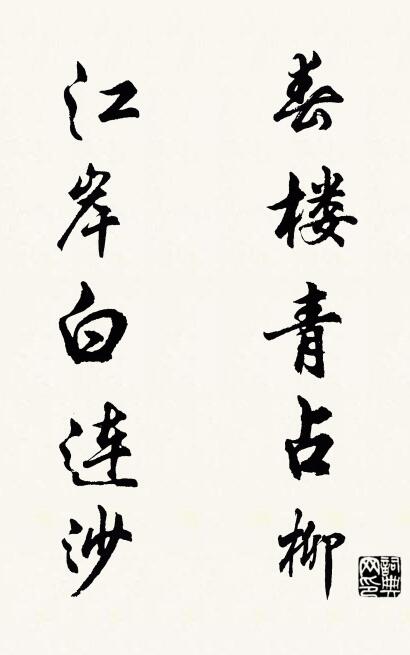 春楼青占柳
江岸白连沙
詞典网印